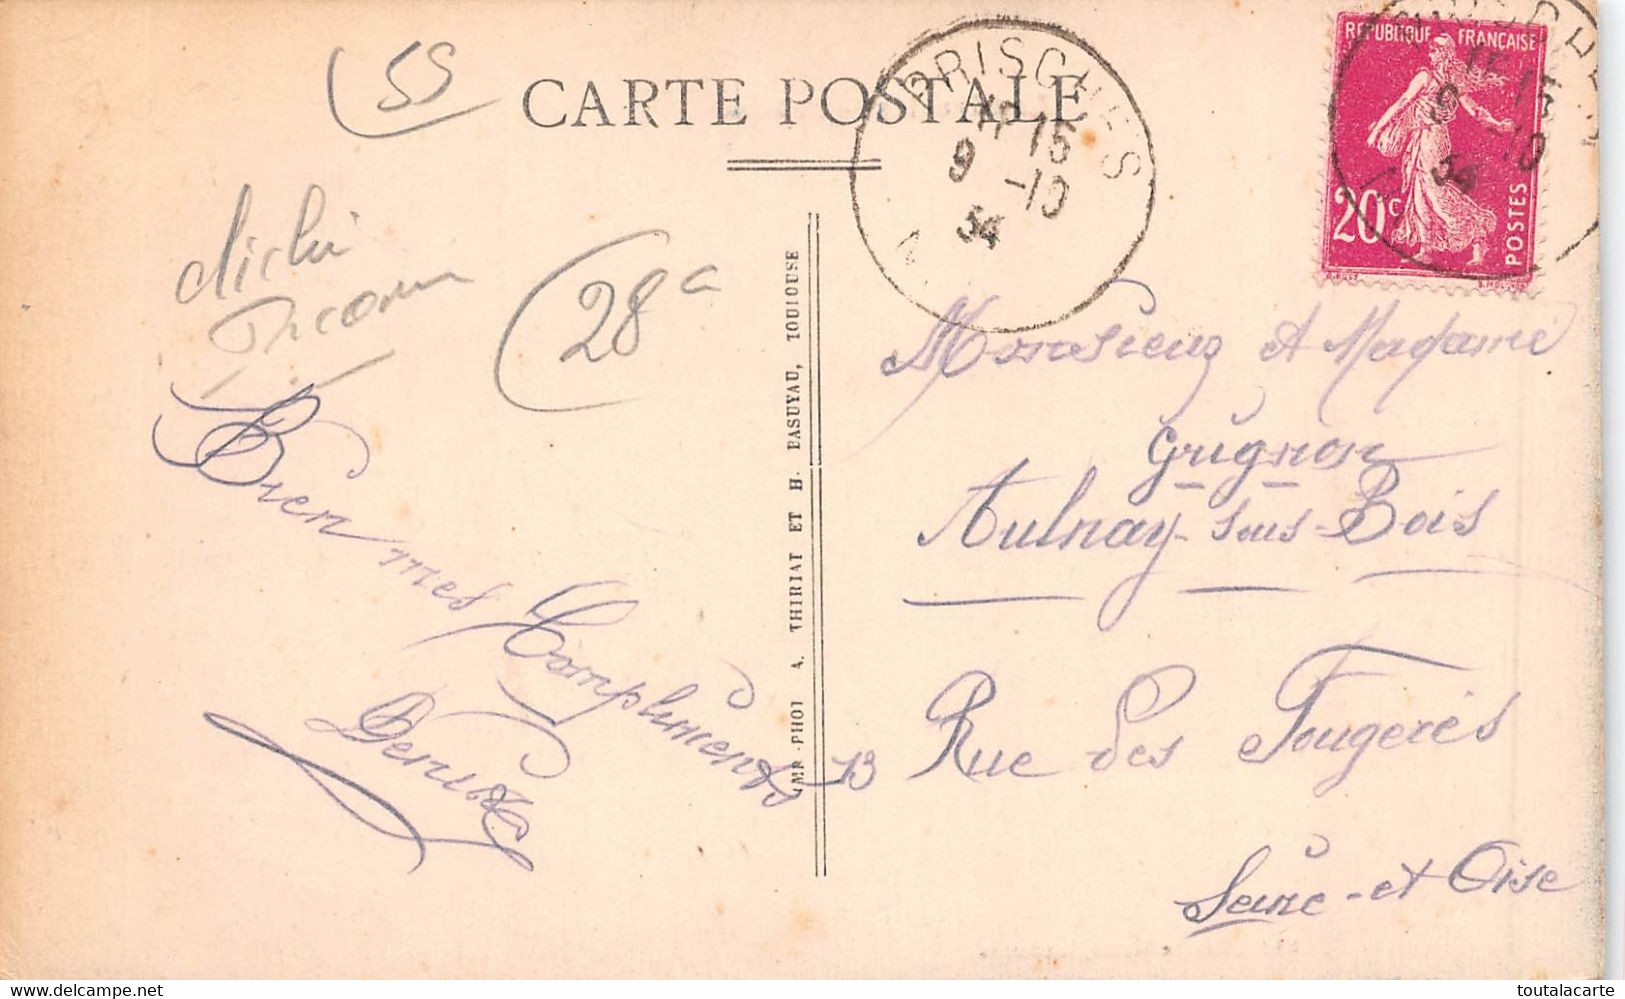 55
CARTE POSTALE
PRISCHES
15
9 -10
34
N
REPUBLIQUE FRANÇAISE
20c
POSTES
15
9 -10
34
28 c
IMP. PHOT A. THIRIAT ET H. BASUYAU, TOULOUSE
Bien mes Compliments
Denise
Monsieur et Madame
Grignon
Aulnay-sous-Bois
13 Rue des Fougeres
Seine-et Oise
toutalacarte